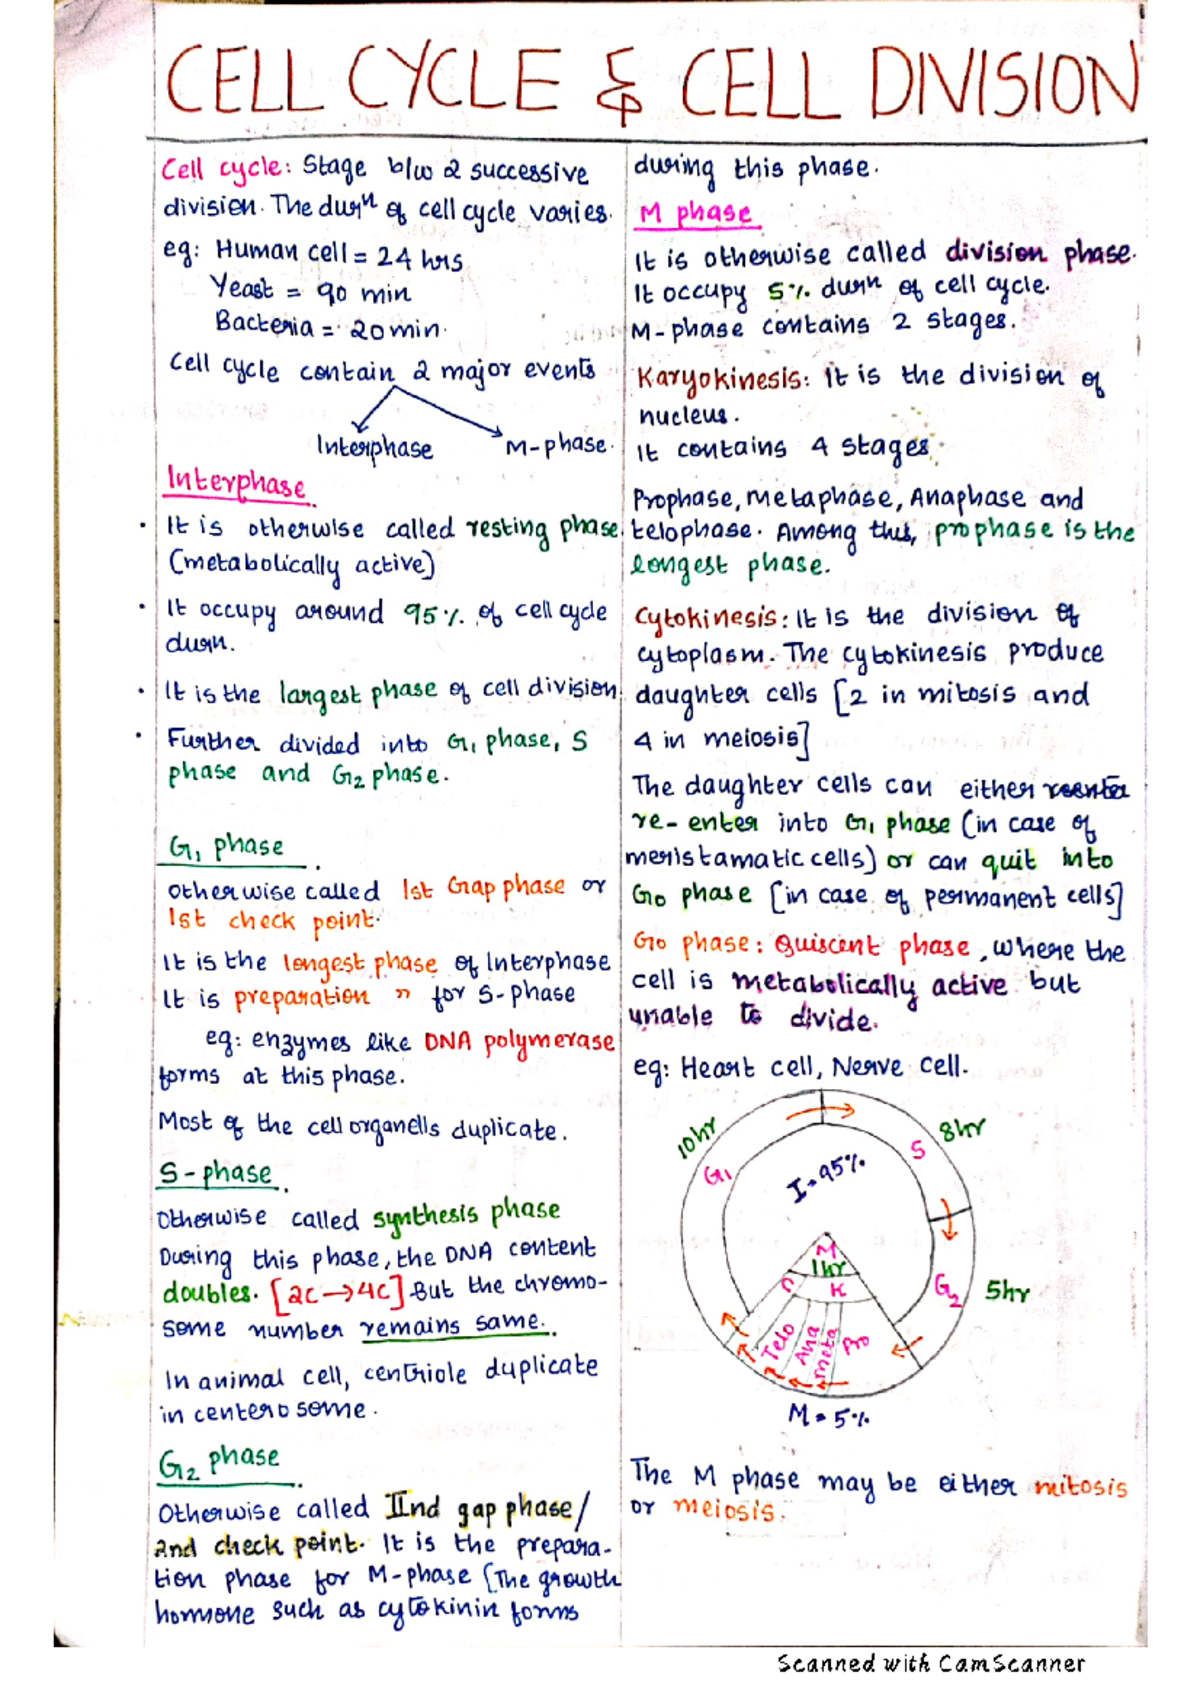 CELL CYCLE & CELL DIVISION
Cell cycle: Stage b/w 2 successive
division. The durⁿ of cell cycle varies.
eg: Human cell = 24 hrs
Yeast = 90 min
Bacteria = 20 min.
Cell cycle contain 2 major events
Interphase M-phase.
Interphase
• It is otherwise called resting phase.
(metabolically active)
• It occupy around 95% of cell cycle
durn.
• It is the largest phase of cell division.
• Further divided into G₁ phase, S
phase and G₂ phase.
G₁ phase
Otherwise called 1st Gap phase or
1st check point.
It is the longest phase of Interphase
It is preparation " for S-phase
eg: enzymes like DNA polymerase
forms at this phase.
Most of the cell organells duplicate.
S-phase
Otherwise called synthesis phase
During this phase, the DNA content
doubles. [2C→4C] But the chromo-
some number remains same.
In animal cell, centriole duplicate
in centerosome.
G₂ phase
Otherwise called IInd gap phase/
2nd check point. It is the prepara-
tion phase for M-phase (The growth
hormone such as cytokinin forms
during this phase.
M phase
It is otherwise called division phase.
It occupy 5% durⁿ of cell cycle.
M-phase contains 2 stages.
Karyokinesis: It is the division of
nucleus.
It contains 4 stages.
Prophase, metaphase, Anaphase and
telophase. Among this, prophase is the
longest phase.
Cytokinesis: It is the division of
cytoplasm. The cytokinesis produce
daughter cells [2 in mitosis and
4 in meiosis]
The daughter cells can either reenter
re-enter into G₁ phase (in case of
meristamatic cells) or can quit into
G₀ phase [in case of permanent cells]
G₀ phase: Quiscent phase, where the
cell is metabolically active but
unable to divide.
eg: Heart cell, Nerve cell.
10hr
G₁
S
8hr
I = 95%
M
1hr
C
K
G₂
5hr
Telo
Ana
meta
Pro
M = 5%
The M phase may be either mitosis
or meiosis.
Scanned with CamScanner